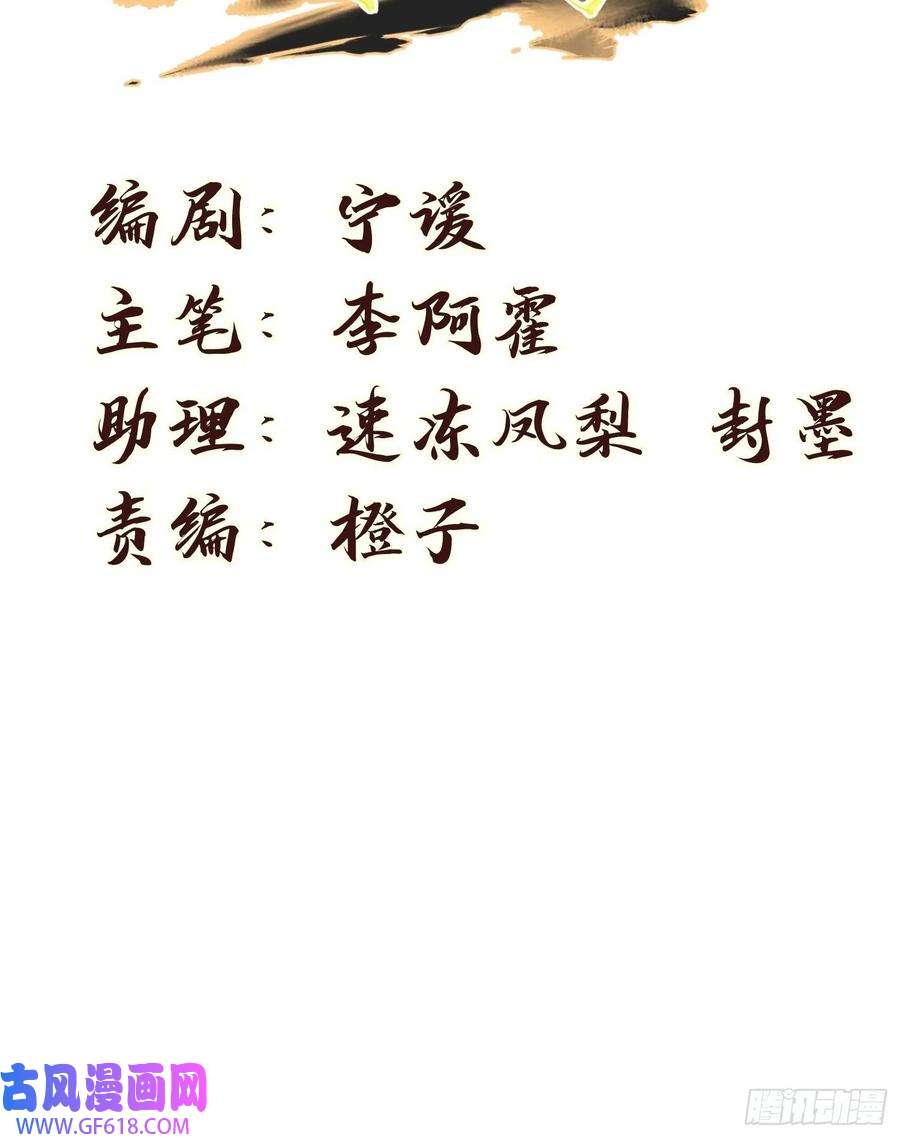 编剧： 宁谖
主笔： 李阿霍
助理： 速冻凤梨 封墨
责编： 橙子
古风漫画网
WWW.GF618.COM
腾讯动漫